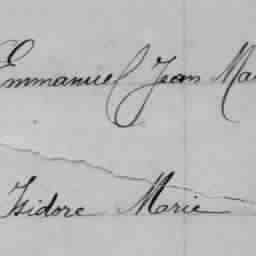 Emmanuel Jean Ma
Isidore Marie